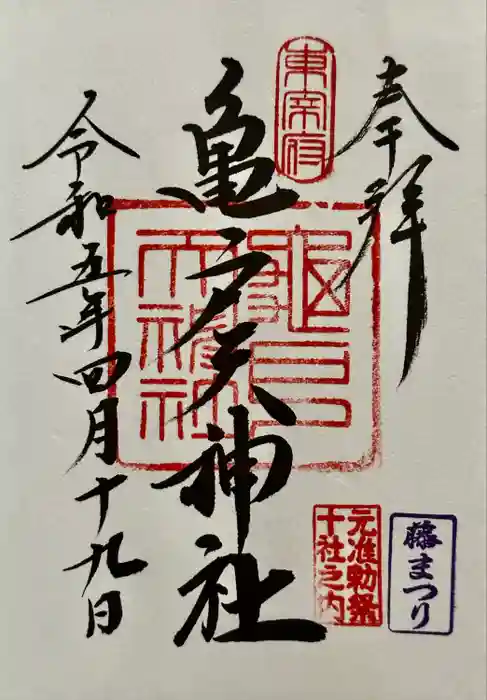 奉拝
東宰府
亀戸天神社
龜戸
天神社
令和五年四月十九日
元准勅祭
十社之内
藤まつり